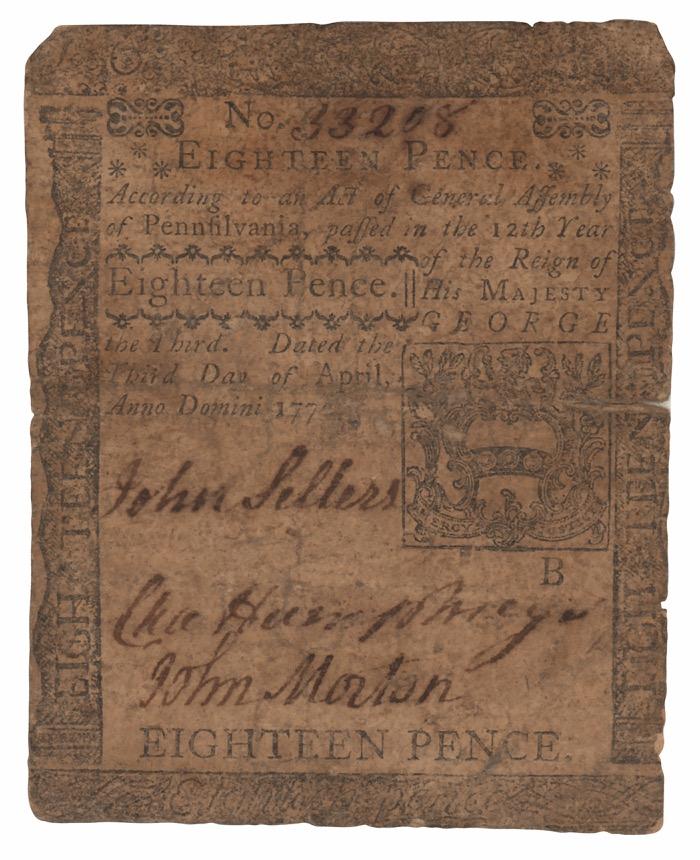 No. 33208
EIGHTEEN PENCE.
According to an Act of General Aſſembly
of Pennſilvania, paſſed in the 12th Year
of the Reign of
Eighteen Pence.
His MAJESTY
GEORGE
the Third. Dated the
Third Day of April,
Anno Domini 177
John Sellers
B
Cha Humphreys
John Morton
EIGHTEEN PENCE.
EIGHTEEN PENCE
EIGHTEEN PENCE